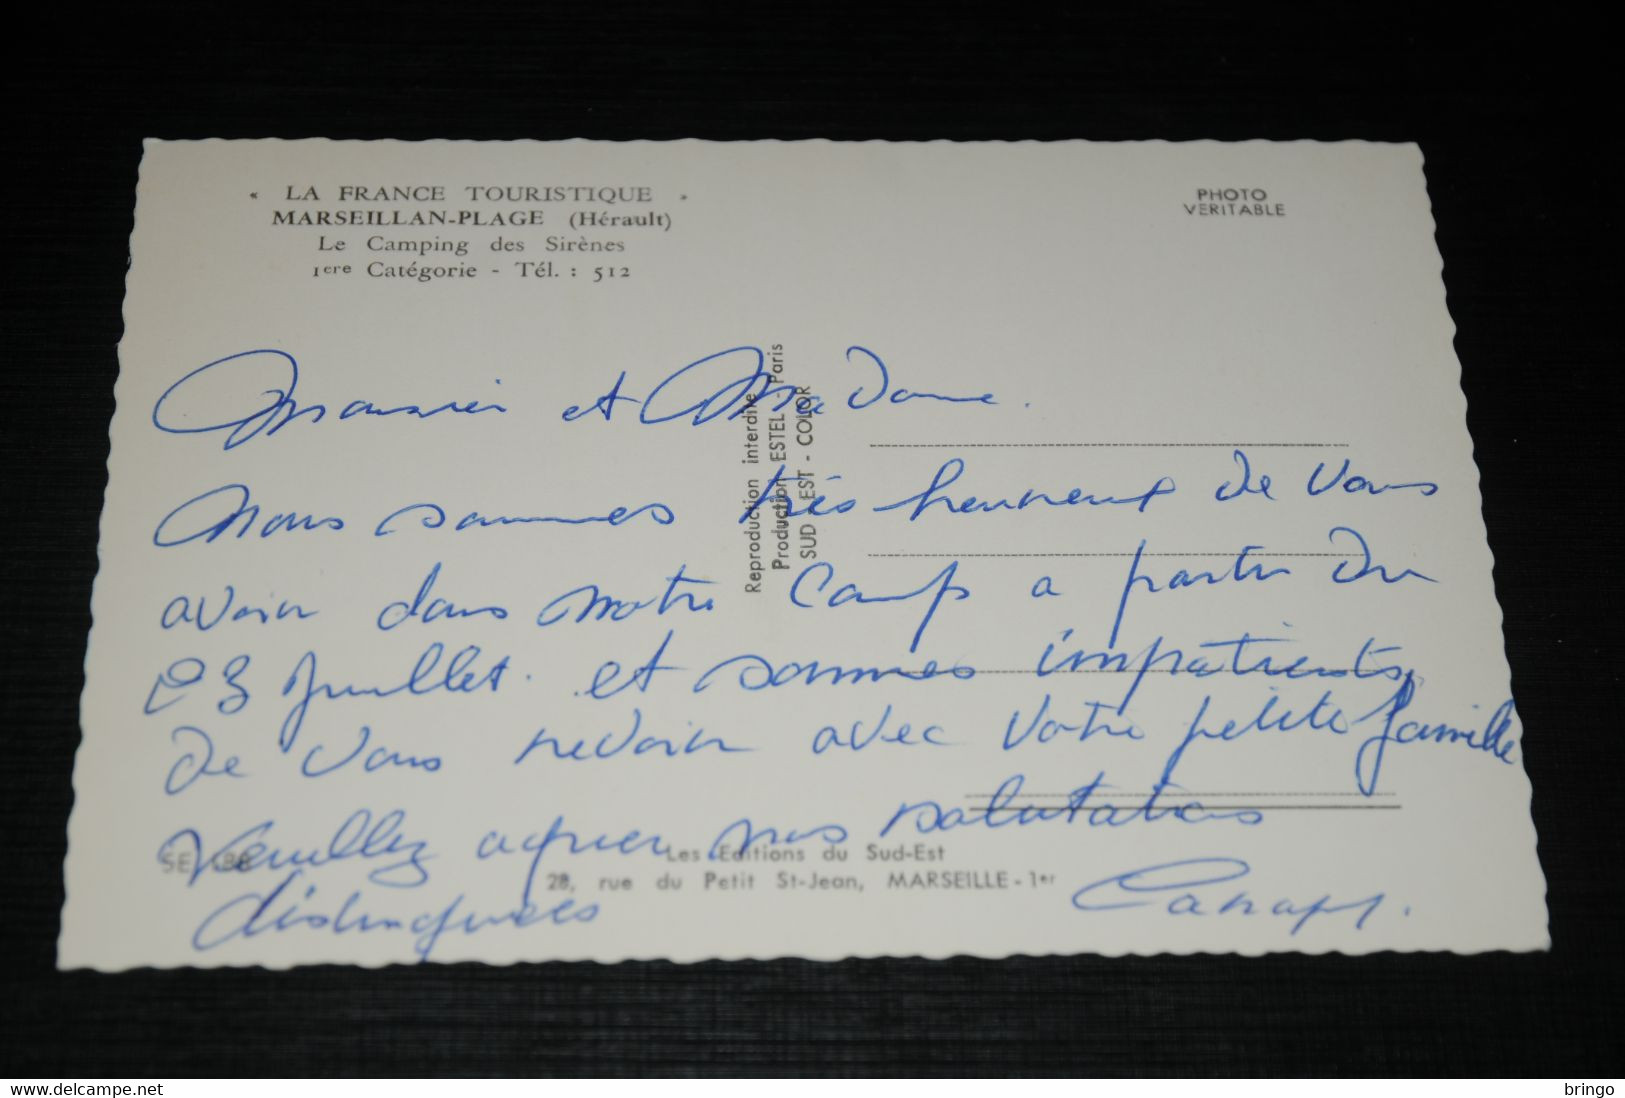 « LA FRANCE TOURISTIQUE »
MARSEILLAN-PLAGE (Hérault)
Le Camping des Sirènes
1ere Catégorie - Tél. : 512
PHOTO
VERITABLE
Monsieur et Madame.
Nous sommes très heureux de vous
avoir dans notre Camp a partir du
23 Juillet. et sommes impatients
de vous revoir avec votre petite famille
Veuillez agréer nos salutations
distinguées
Reproduction interdite
Production ESTEL - Paris
SUD EST - COLOR
Les Editions du Sud-Est
28, rue du Petit St-Jean, MARSEILLE - 1er
bringo